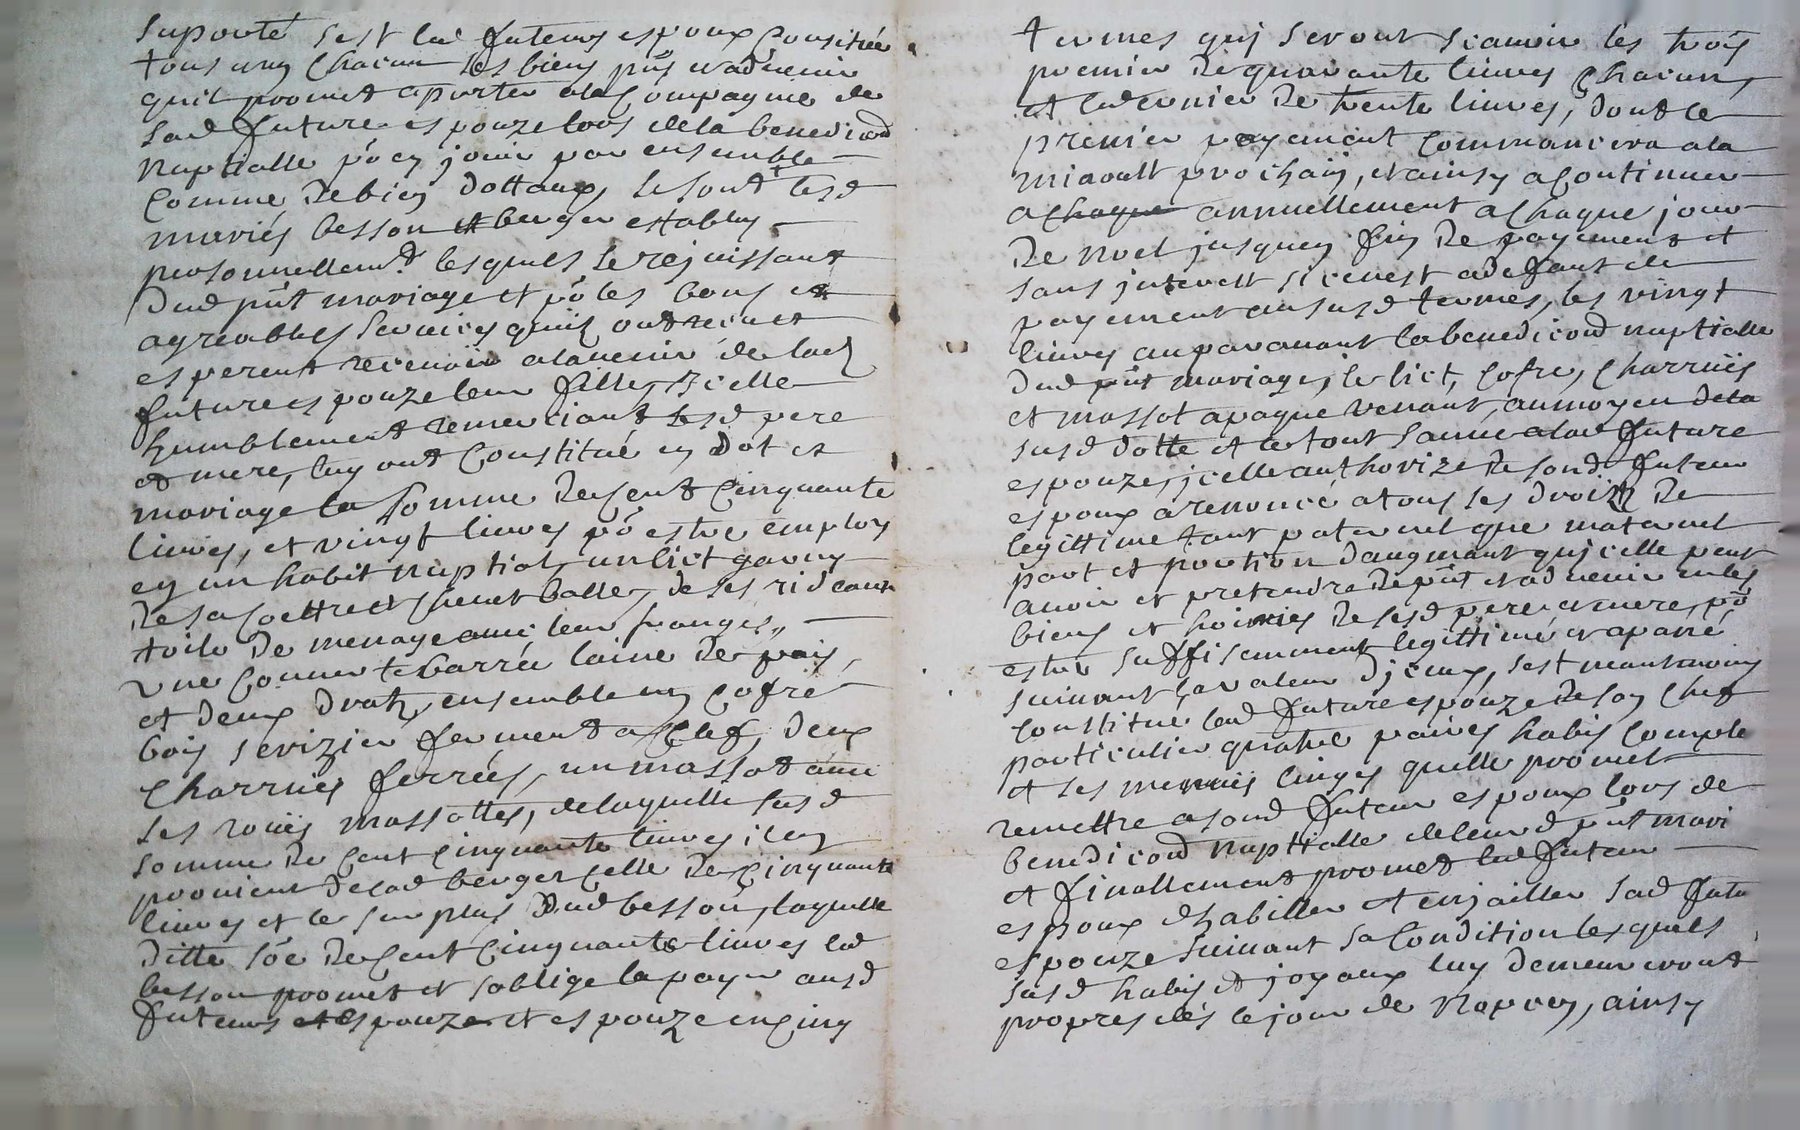 suporté sest led futeurs espoux Constitué
tous ung Chacun ses biens pnts et advenir
quil promet aporter a la Compagnie de
sad future espouze lors de la benediction
nuptialle po en jouir par ensemble
Comme de bien dottaux, se sont lesd
mariés besson et berger establys
personnellemt lesquels se rejuissant
dud pnt mariage et po les bons et
agreables servaices quils ont receu et
esperent recevoir a ladvenir de lad
future espouze leur fille, Icelle
humblement remerciant lesd pere
et mere, luy ont Constitué en dot et
mariage la somme de Cent Cinquante
livres, et vingt livres po estre employ
en un habit nuptial, un lict garny
de sa Coettre et Chevet balle, de ses rideaux
toile de menage avec leur franges,,
une Couverte barrée laine de pais,
et deux dratz, ensemble un Cofre
bois serizier ferment a Clef, deux
Charrües ferrées, un massot avec
ses roües massottes, de laquelle susd
somme de Cent Cinquante livres il en
provient de lad berger Celle de Cinquante
livres et le surplus dud besson, laquelle
ditte soe de Cent Cinquante livres led
besson promet et soblige la payer ausd
futeurs espouze et espouze en Cinq
termes qui seront scavoir les trois
premier de quarante livres Chacun,
et le dernier de trente livres, dont le
premier payement Commancera a la
miaoult prochain, et ainsy a Continuer
a chaque annuellement a Chaque jour
de noel jusques fin de payement et
sans interest si ce nest a defaut de
payement au susd termes, les vingt
livres auparavant la benediction nuptialle
dud pnt mariage, le lict, Cofre, Charrües
et massot a paque venant, au moyen de la
susd dotte et le tout sauve a lad future
espouze, icelle authorize de sond futeur
espoux a renoncé a tous ses droitz de
legittime tant paternel que maternel
part et portion daugmant quicelle peut
avoir et pretendre de pnt et advenir en les
biens et hoiries de sesd pere et mere, po
estre suffisemment legittimé et aparié
suivant la valeur diceux, sest neantmoins
Constitué lad future espouze de son Chef
particulier quatre paires habis Comple
et ses menuis linges quelle promet
remettre a sond futeur espoux lors de
benediction nuptialle de leurd pnt mari
et finallement promet led futeur
espoux dhabiller et enjailler sad futu
espouze suivant sa Condition lesquels
susd habis et joyaux luy demeureront
propres dés le jour de Nopces, ainsy